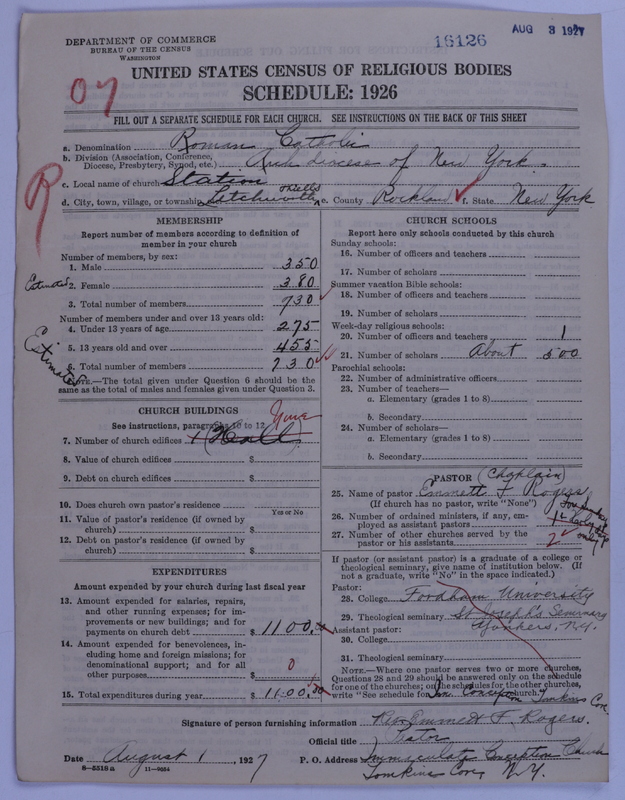 DEPARTMENT OF COMMERCE
BUREAU OF THE CENSUS
WASHINGTON
16126
AUG 3 1927
UNITED STATES CENSUS OF RELIGIOUS BODIES
SCHEDULE: 1926
FILL OUT A SEPARATE SCHEDULE FOR EACH CHURCH. SEE INSTRUCTIONS ON THE BACK OF THIS SHEET
a. Denomination Roman Catholic
b. Division (Association, Conference, Diocese, Presbytery, Synod, etc.) Arch diocese of New York.
c. Local name of church Station
d. City, town, village, or township Letchworth e. County Rockland f. State New York
MEMBERSHIP
Report number of members according to definition of member in your church
Number of members, by sex:
1. Male 350
Estimated 2. Female 380
3. Total number of members 730
Number of members under and over 13 years old:
4. Under 13 years of age 275
5. 13 years old and over 455
Estimated 6. Total number of members 730
NOTE.—The total given under Question 6 should be the same as the total of males and females given under Question 3.
CHURCH BUILDINGS
See instructions, paragraphs 10 to 12
7. Number of church edifices 1 (Hall) None
8. Value of church edifices $
9. Debt on church edifices $
10. Does church own pastor's residence?
Yes or No
11. Value of pastor's residence (if owned by church) $
12. Debt on pastor's residence (if owned by church) $
EXPENDITURES
Amount expended by your church during last fiscal year
13. Amount expended for salaries, repairs, and other running expenses; for improvements or new buildings; and for payments on church debt $ 1100.
14. Amount expended for benevolences, including home and foreign missions; for denominational support; and for all other purposes $ 0
15. Total expenditures during year $ 1100.
CHURCH SCHOOLS
Report here only schools conducted by this church
Sunday schools:
16. Number of officers and teachers
17. Number of scholars
Summer vacation Bible schools:
18. Number of officers and teachers
19. Number of scholars
Week-day religious schools:
20. Number of officers and teachers 1
21. Number of scholars About 500
Parochial schools:
22. Number of administrative officers
23. Number of teachers—
a. Elementary (grades 1 to 8)
b. Secondary
24. Number of scholars—
a. Elementary (grades 1 to 8)
b. Secondary
PASTOR (Chaplain)
25. Name of pastor Emmett F. Rogers
(If church has no pastor, write "None")
26. Number of ordained ministers, if any, employed as assistant pastors 1
27. Number of other churches served by the pastor or his assistants 2 only
If pastor (or assistant pastor) is a graduate of a college or theological seminary, give name of institution below. (If not a graduate, write "No" in the space indicated.)
Pastor:
28. College Fordham University
29. Theological seminary St. Joseph's Seminary
Yonkers, N.Y.
Assistant pastor:
30. College
31. Theological seminary
NOTE.—Where one pastor serves two or more churches, Questions 28 and 29 should be answered only on the schedule for one of the churches; on the schedules for the other churches, write "See schedule for Im. Concepcion church." Tomkins Cove.
Signature of person furnishing information Rev. Emmett F. Rogers.
Official title Pastor
Date August 1, 1927 P. O. Address Immaculate Conception Church
Tomkins Cove, N.Y.
8—5518a 11—9054